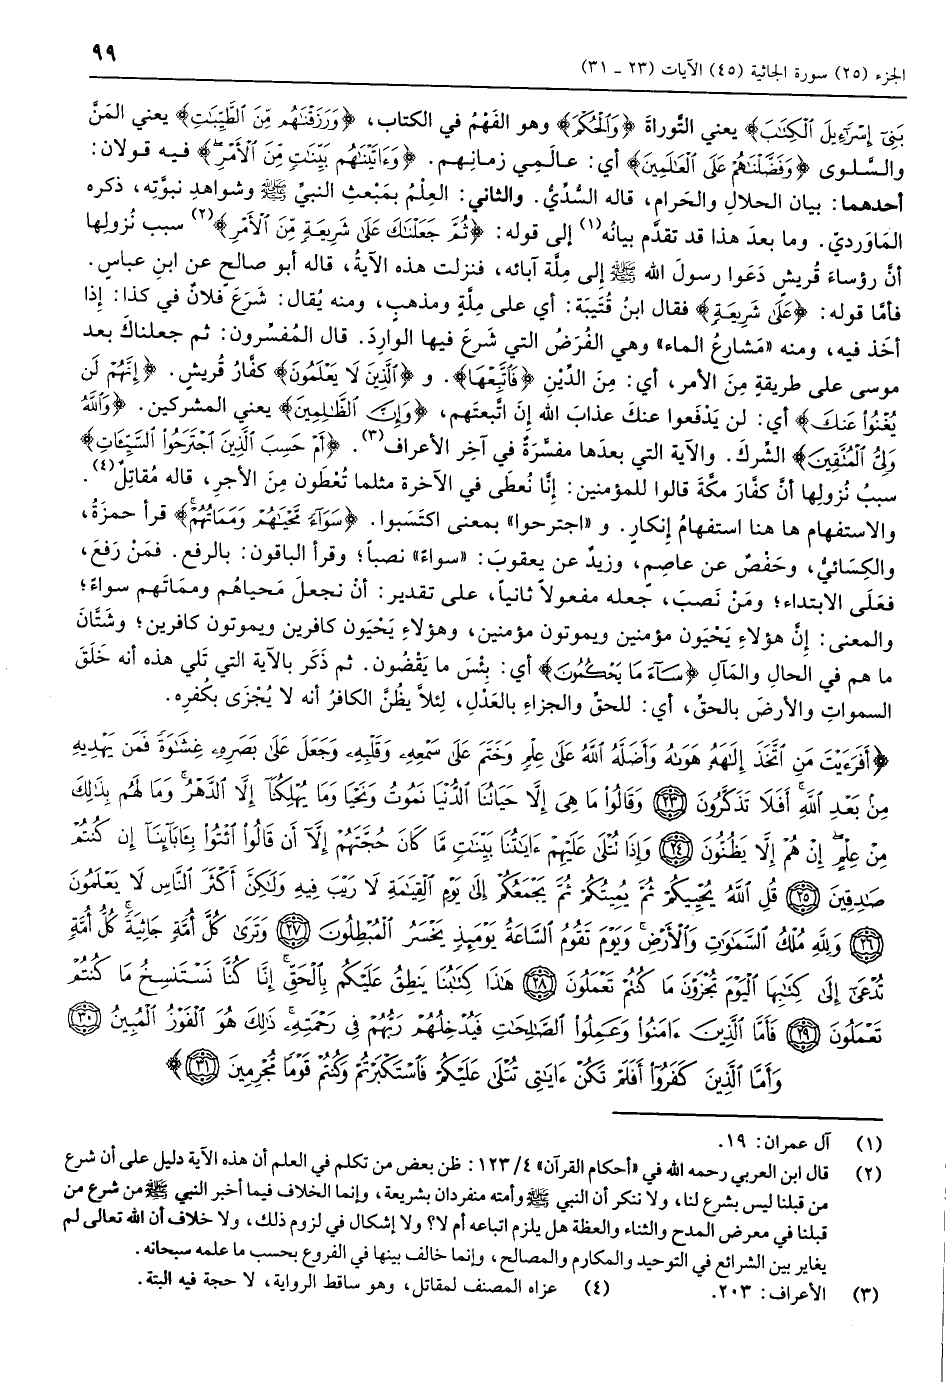 الجزء (٢٥) سورة الجاثية (٤٥) الآيات (٢٣ ـ ٣١)
٩٩
بَنِيٓ إِسْرَٰٓءِيلَ ٱلْكِتَٰبَ﴾ يعني التَّوراةَ ﴿وَٱلْحُكْمَ﴾ وهو الفَهْمُ في الكتاب، ﴿وَرَزَقْنَٰهُم مِّنَ ٱلطَّيِّبَٰتِ﴾ يعني المَنَّ
والسَّلوى ﴿وَفَضَّلْنَٰهُمْ عَلَى ٱلْعَٰلَمِينَ﴾ أي: عالَمِي زمانِهم. ﴿وَءَاتَيْنَٰهُم بَيِّنَٰتٍ مِّنَ ٱلْأَمْرِ﴾ فيه قولان:
أحدهما: بيان الحلال والحَرام، قاله السُّدِّيُّ. والثاني: العِلْمُ بمَبْعثِ النبيِّ ﷺ وشواهدِ نبوَّتِه، ذكره
المَاوَرديّ. وما بعدَ هذا قد تقدَّم بيانُه(١) إلى قوله: ﴿ثُمَّ جَعَلْنَٰكَ عَلَىٰ شَرِيعَةٍ مِّنَ ٱلْأَمْرِ﴾(٢) سبب نُزولِها
أنَّ رؤساءَ قُريشٍ دَعَوا رسولَ الله ﷺ إلى مِلَّة آبائه، فنزلت هذه الآيةُ، قاله أبو صالحٍ عن ابنِ عباسٍ.
فأمَّا قوله: ﴿عَلَىٰ شَرِيعَةٍ﴾ فقال ابنُ قُتَيبَة: أي على مِلَّةٍ ومذهبٍ، ومنه يُقال: شَرَعَ فلانٌ في كذا: إذا
أخَذ فيه، ومنه «مَشارعُ الماء» وهي الفُرَضُ التي شَرعَ فيها الواردُ. قال المُفسِّرون: ثم جعلناكَ بعد
موسى على طريقةٍ مِنَ الأمر، أي: مِنَ الدِّيْنِ ﴿فَٱتَّبِعْهَا﴾. و ﴿ٱلَّذِينَ لَا يَعْلَمُونَ﴾ كفَّارُ قُريشٍ. ﴿إِنَّهُمْ لَن
يُغْنُوا۟ عَنكَ﴾ أي: لن يَدْفَعوا عنكَ عذابَ الله إنِ اتَّبعتَهم، ﴿وَإِنَّ ٱلظَّٰلِمِينَ﴾ يعني المشركين. ﴿وَٱللَّهُ
وَلِيُّ ٱلْمُتَّقِينَ﴾ الشِّركَ. والآية التي بعدَها مفسَّرَةٌ في آخِر الأعراف(٣). ﴿أَمْ حَسِبَ ٱلَّذِينَ ٱجْتَرَحُوا۟ ٱلسَّيِّـَٔاتِ﴾
سببُ نُزولِها أنَّ كفَّارَ مكَّةَ قالوا للمؤمنين: إنَّا نُعطَى في الآخرة مثلما تُعْطَون مِنَ الأجرِ، قاله مُقاتلٌ(٤).
والاستفهام ها هنا استفهامُ إنكارٍ. و «اجترحوا» بمعنى اكتَسَبوا. ﴿سَوَآءً مَّحْيَاهُمْ وَمَمَاتُهُمْ﴾ قرأ حمزةُ،
والكِسَائيُّ، وحَفْصٌ عن عاصِمٍ، وزيدٌ عن يعقوبَ: «سواءً» نصباً؛ وقرأ الباقون: بالرفع. فمَنْ رَفعَ،
فعَلَى الابتداء؛ ومَنْ نَصبَ، جعله مفعولاً ثانياً، على تقدير: أنْ نجعلَ مَحياهُم ومماتَهم سواءً؛
والمعنى: إنَّ هؤلاءِ يَحْيَون مؤمنين ويموتون مؤمنين، وهؤلاءِ يَحْيَون كافرين ويموتون كافرين؛ وشتَّانَ
ما هم في الحالِ والمَآلِ ﴿سَآءَ مَا يَحْكُمُونَ﴾ أي: بِئْسَ ما يَقْضُون. ثم ذَكَر بالآية التي تَلي هذه أنه خَلَقَ
السمواتِ والأرضَ بالحقِّ، أي: للحقِّ والجزاءِ بالعَدْلِ، لِئلاَّ يظُنَّ الكافرُ أنه لا يُجْزَى بكُفرِه.
﴿أَفَرَءَيْتَ مَنِ ٱتَّخَذَ إِلَٰهَهُۥ هَوَىٰهُ وَأَضَلَّهُ ٱللَّهُ عَلَىٰ عِلْمٍ وَخَتَمَ عَلَىٰ سَمْعِهِۦ وَقَلْبِهِۦ وَجَعَلَ عَلَىٰ بَصَرِهِۦ غِشَٰوَةً فَمَن يَهْدِيهِ
مِنۢ بَعْدِ ٱللَّهِ أَفَلَا تَذَكَّرُونَ ﴿٢٣﴾ وَقَالُوا۟ مَا هِىَ إِلَّا حَيَاتُنَا ٱلدُّنْيَا نَمُوتُ وَنَحْيَا وَمَا يُهْلِكُنَآ إِلَّا ٱلدَّهْرُ وَمَا لَهُم بِذَٰلِكَ
مِنْ عِلْمٍ إِنْ هُمْ إِلَّا يَظُنُّونَ ﴿٢٤﴾ وَإِذَا تُتْلَىٰ عَلَيْهِمْ ءَايَٰتُنَا بَيِّنَٰتٍ مَّا كَانَ حُجَّتَهُمْ إِلَّآ أَن قَالُوا۟ ٱئْتُوا۟ بِـَٔابَآئِنَآ إِن كُنتُمْ
صَٰدِقِينَ ﴿٢٥﴾ قُلِ ٱللَّهُ يُحْيِيكُمْ ثُمَّ يُمِيتُكُمْ ثُمَّ يَجْمَعُكُمْ إِلَىٰ يَوْمِ ٱلْقِيَٰمَةِ لَا رَيْبَ فِيهِ وَلَٰكِنَّ أَكْثَرَ ٱلنَّاسِ لَا يَعْلَمُونَ
﴿٢٦﴾ وَلِلَّهِ مُلْكُ ٱلسَّمَٰوَٰتِ وَٱلْأَرْضِ وَيَوْمَ تَقُومُ ٱلسَّاعَةُ يَوْمَئِذٍ يَخْسَرُ ٱلْمُبْطِلُونَ ﴿٢٧﴾ وَتَرَىٰ كُلَّ أُمَّةٍ جَاثِيَةً كُلُّ أُمَّةٍ
تُدْعَىٰٓ إِلَىٰ كِتَٰبِهَا ٱلْيَوْمَ تُجْزَوْنَ مَا كُنتُمْ تَعْمَلُونَ ﴿٢٨﴾ هَٰذَا كِتَٰبُنَا يَنطِقُ عَلَيْكُم بِٱلْحَقِّ إِنَّا كُنَّا نَسْتَنسِخُ مَا كُنتُمْ
تَعْمَلُونَ ﴿٢٩﴾ فَأَمَّا ٱلَّذِينَ ءَامَنُوا۟ وَعَمِلُوا۟ ٱلصَّٰلِحَٰتِ فَيُدْخِلُهُمْ رَبُّهُمْ فِى رَحْمَتِهِۦ ذَٰلِكَ هُوَ ٱلْفَوْزُ ٱلْمُبِينُ ﴿٣٠﴾
وَأَمَّا ٱلَّذِينَ كَفَرُوٓا۟ أَفَلَمْ تَكُنْ ءَايَٰتِى تُتْلَىٰ عَلَيْكُمْ فَٱسْتَكْبَرْتُمْ وَكُنتُمْ قَوْمًا مُّجْرِمِينَ ﴿٣١﴾﴾
(١) آل عمران: ١٩.
(٢) قال ابن العربي رحمه الله في «أحكام القرآن» ٤/ ١٢٣: ظن بعض من تكلم في العلم أن هذه الآية دليل على أن شرع
من قبلنا ليس بشرع لنا، ولا ننكر أن النبي ﷺ وأمته منفردان بشريعة، وإنما الخلاف فيما أخبر النبي ﷺ من شرع من
قبلنا في معرض المدح والثناء والعظة هل يلزم اتباعه أم لا؟ ولا إشكال في لزوم ذلك، ولا خلاف أن الله تعالى لم
يغاير بين الشرائع في التوحيد والمكارم والمصالح، وإنما خالف بينها في الفروع بحسب ما علمه سبحانه.
(٣) الأعراف: ٢٠٣. (٤) عزاه المصنف لمقاتل، وهو ساقط الرواية، لا حجة فيه البتة.